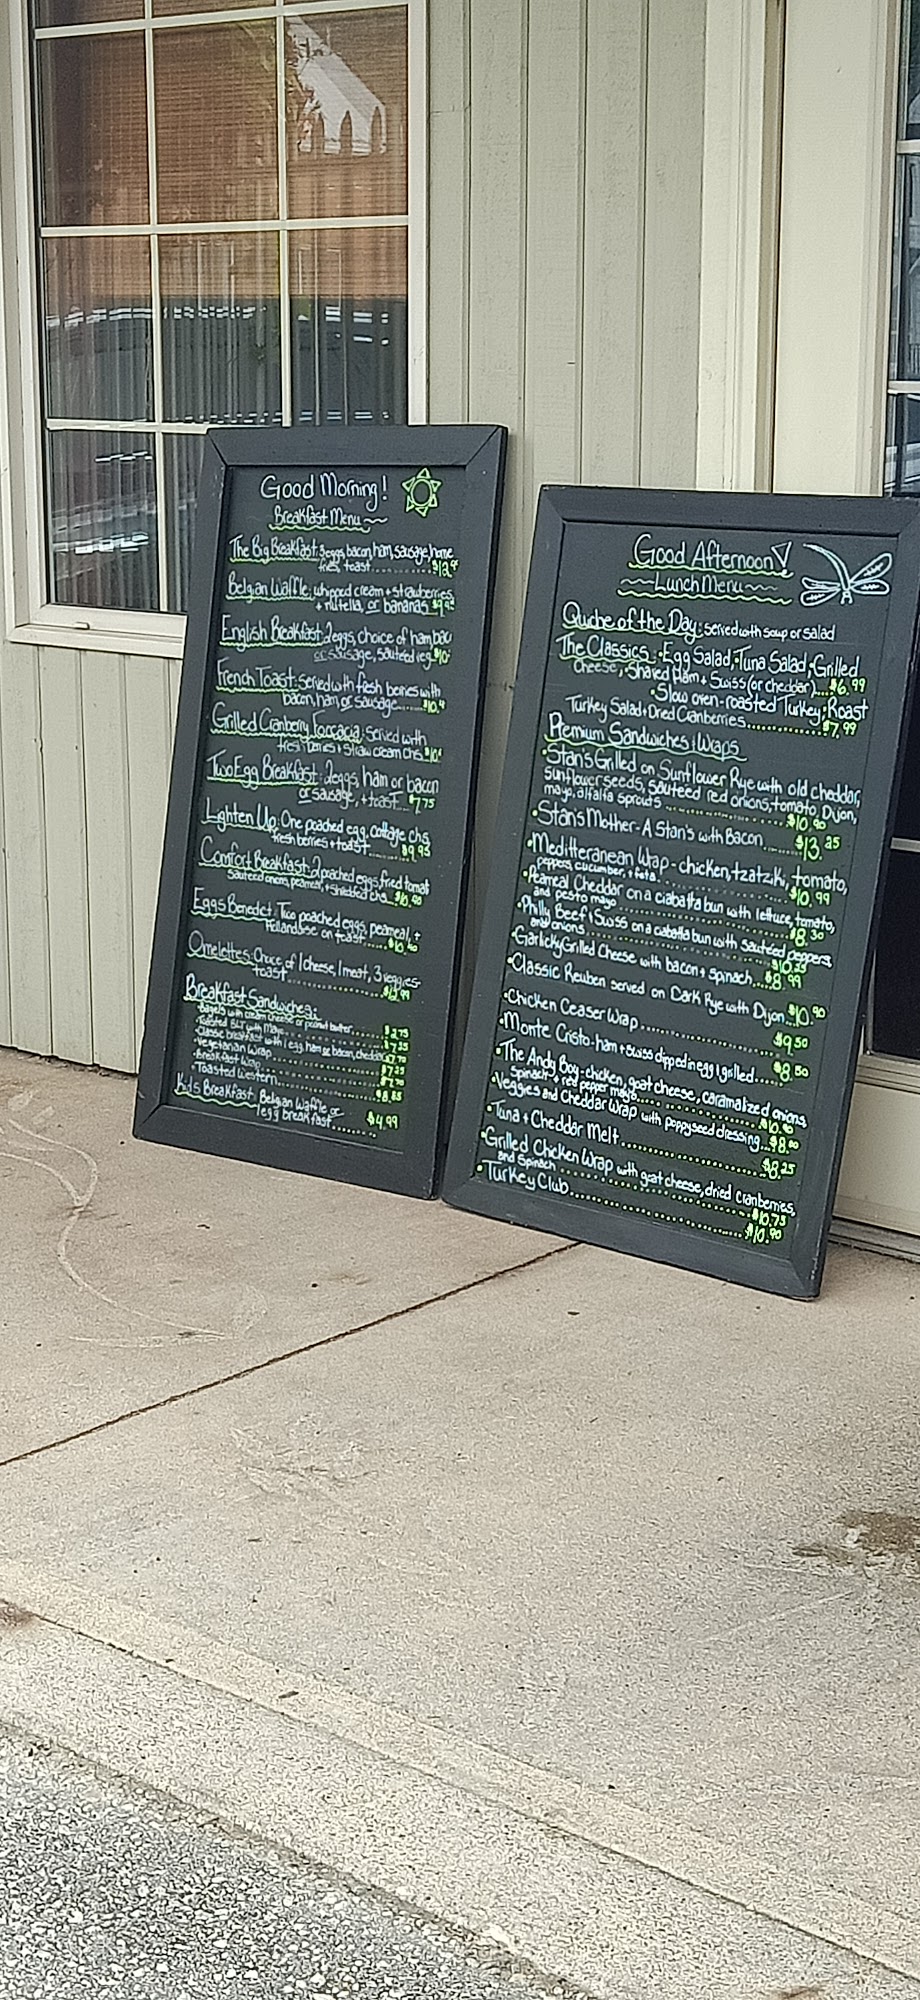 Good Morning!
Breakfast Menu
The Big Breakfast: 3eggs, bacon, ham, sausage, home
fries, toast
Belgian Waffle: whipped cream + strawberries,
+ nutella, or bananas
English Breakfast: 2eggs, choice of ham bac
or sausage, sauteéd veg
French Toast: served with fresh berries with
bacon, ham, or sausage
Grilled Cranberry Foccacia: served with
fresh berries + straw cream chs
Two Egg Breakfast: 2eggs, ham or bacon
or sausage, + toast... $7.75
Lighten Up: One poached egg, cottage chs
fresh berries + toast $9.95
Comfort Breakfast: 2 poached eggs, fried tomato
sauteed onions, peameal, + shredded chs $10.90
Eggs Benedict: Two poached eggs, peameal, +
Hollandaise on toast
Omelettes: Choice of 1 cheese, 1 meat, 3 veggies
toast
Breakfast Sandwiches:
Bagels with cream cheese or peanut butter
Toasted BLT with Mayo
Classic breakfast with 1 egg, ham or bacon, cheddar
Vegetarian Wrap
Breakfast Wrap
Toasted Western
Kids Breakfast: Belgian Waffle or
1 egg breakfast $4.99
Good Afternoon
Lunch Menu
Quiche of the Day: served with soup or salad
The Classics: •Egg Salad, •Tuna Salad, •Grilled
Cheese, •Shaved Ham + Swiss (or cheddar)... $6.99
•Slow oven-roasted Turkey, Roast
Turkey Salad + Dried Cranberries $7.99
Premium Sandwiches + Wraps
•Stan's Grilled on Sunflower Rye with old cheddar,
sunflower seeds, sauteed red onions, tomato, Dijon,
mayo, alfalfa sprouts $10.90
•Stan's Mother - A Stan's with Bacon $13.25
•Mediterranean Wrap - chicken, tzatziki, tomato,
peppers, cucumber, + feta $10.99
•Peameal Cheddar on a ciabatta bun with lettuce, tomato,
and pesto mayo $8.30
•Philly Beef + Swiss on a ciabatta bun with sauteed peppers
and onions
•Garlicky Grilled Cheese with bacon + spinach $8.99
•Classic Reuben served on Dark Rye with Dijon $10.90
•Chicken Ceaser Wrap $9.50
•Monte Cristo - ham + swiss dipped in egg + grilled $8.50
•The Andy Boy - chicken, goat cheese, caramalized onions,
spinach + red pepper mayo $10.90
•Veggies and Cheddar Wrap with poppyseed dressing
•Tuna + Cheddar Melt $8.25
•Grilled Chicken Wrap with goat cheese, dried cranberries,
and spinach $10.75
•Turkey Club $10.90